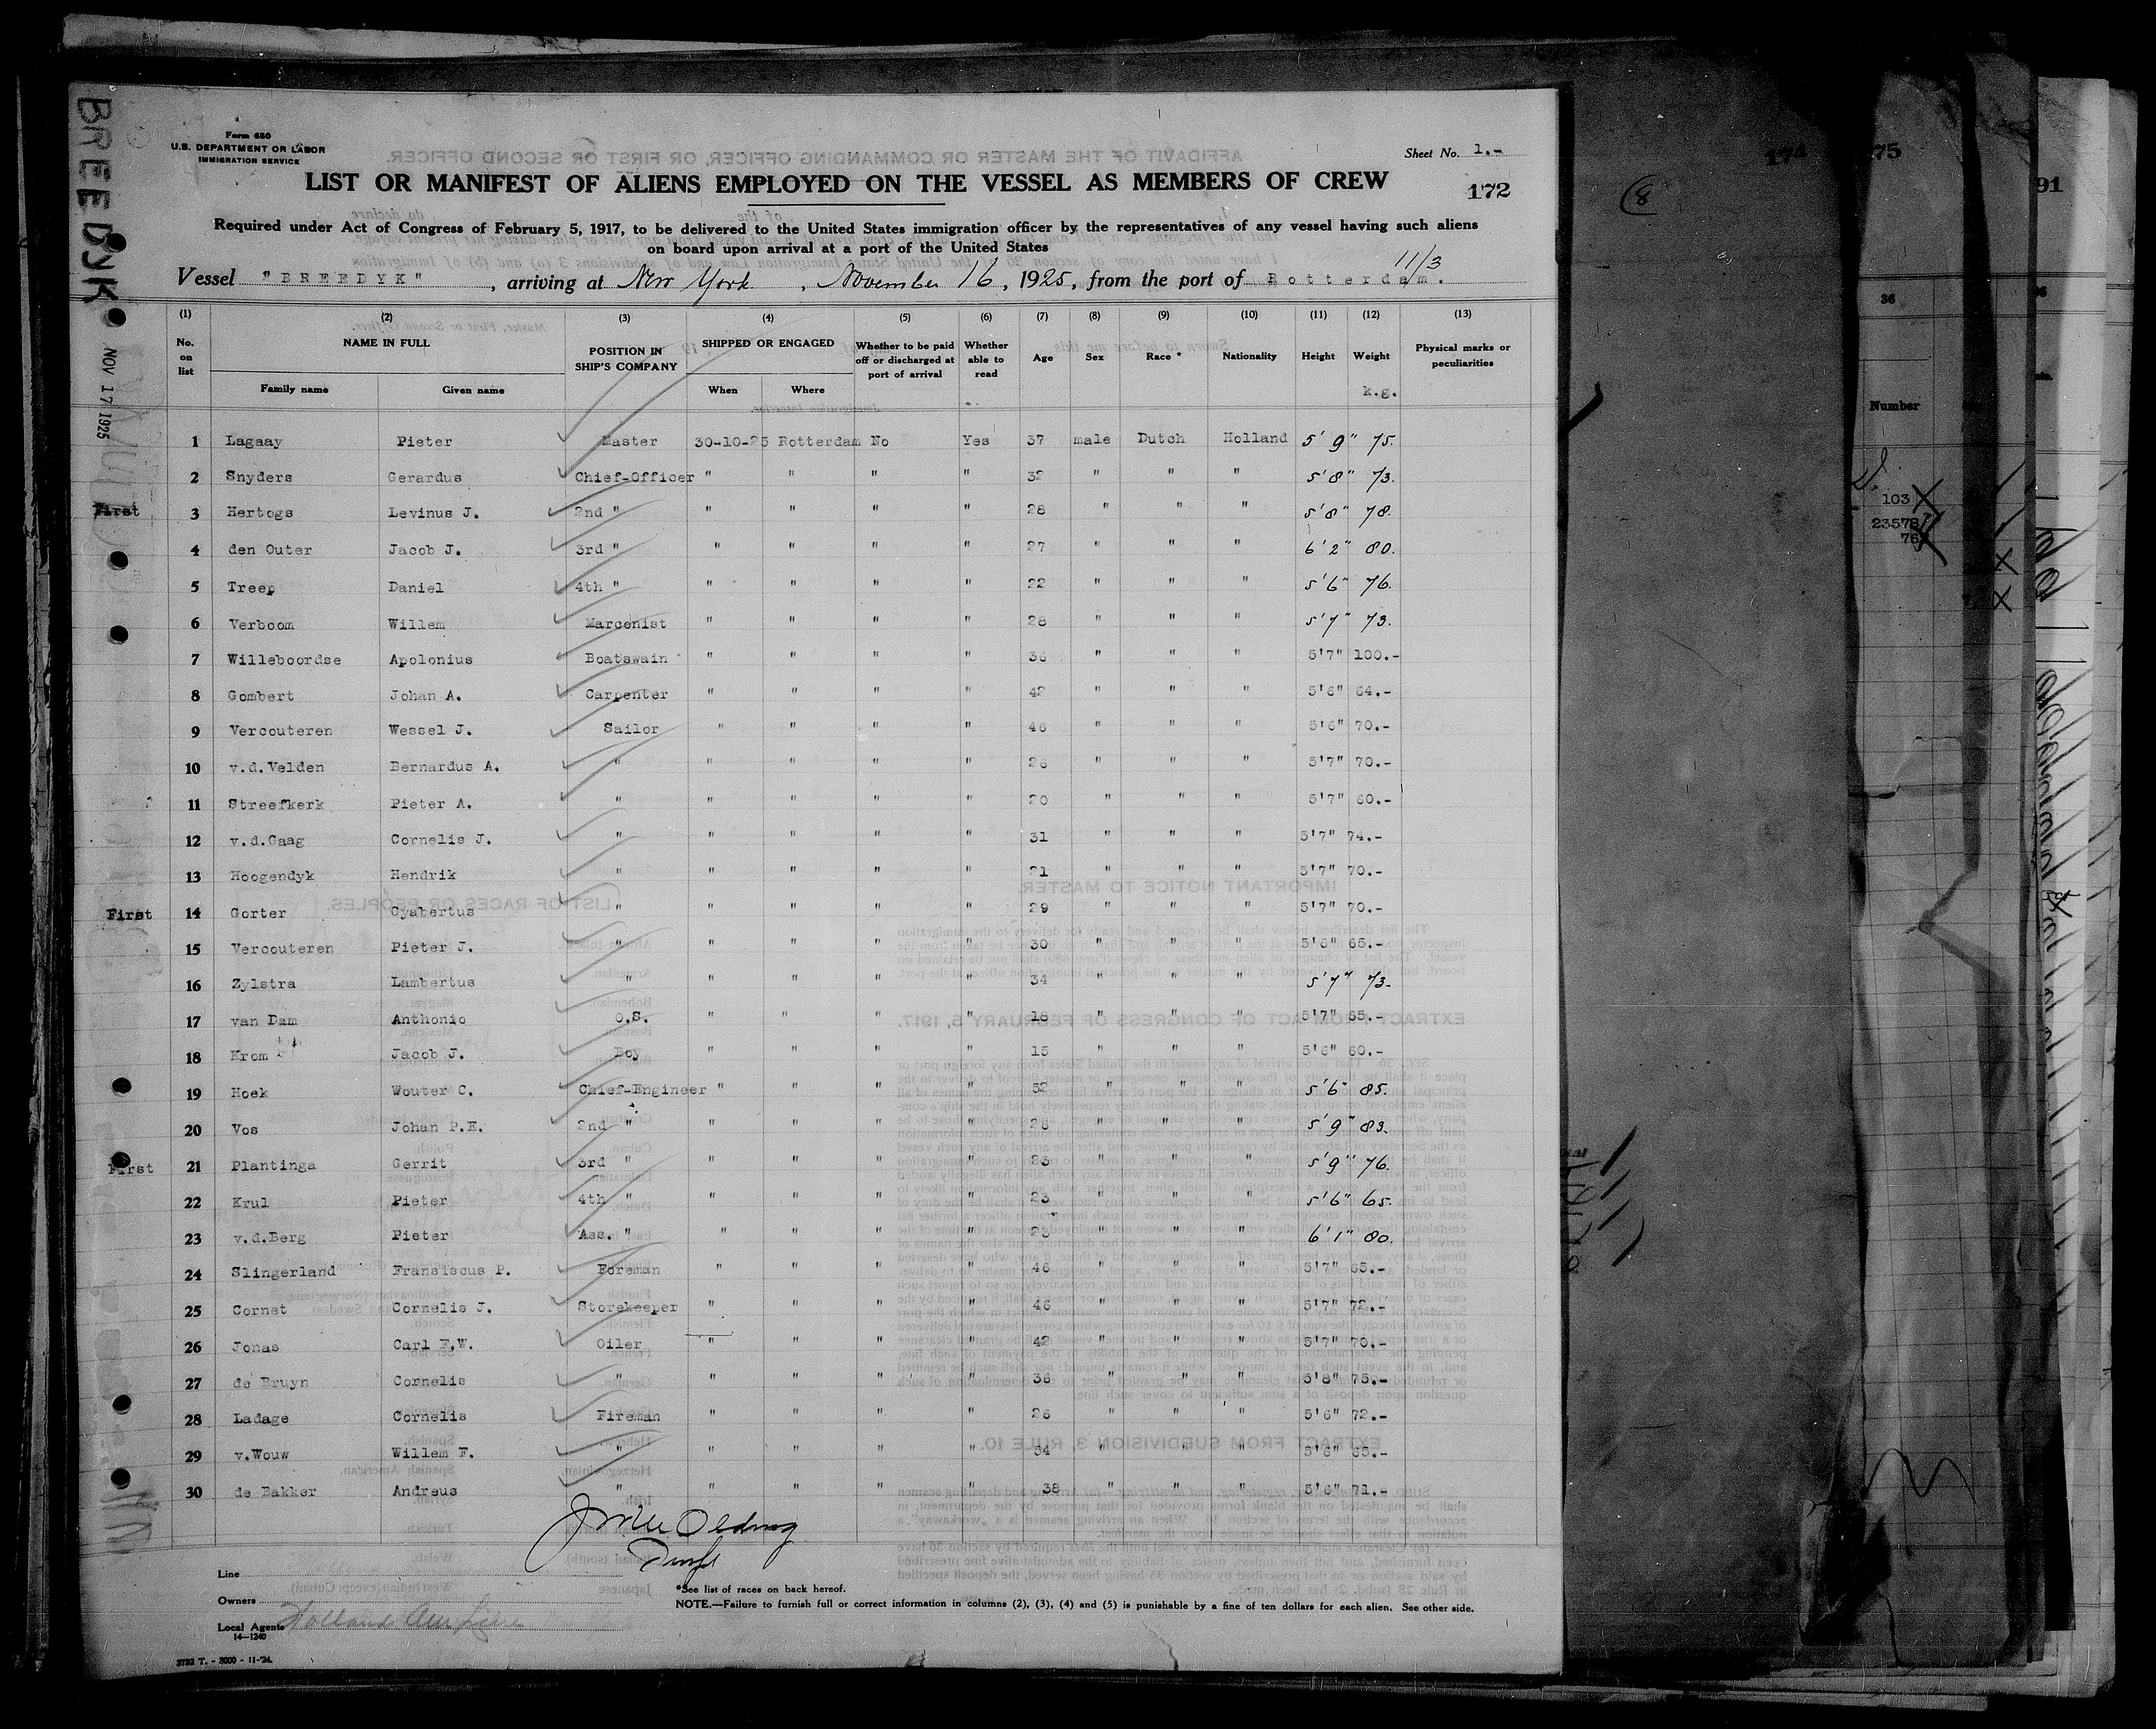 BREEDYK
NOV 17 1925
Form 680
U.S. DEPARTMENT OR LABOR
IMMIGRATION SERVICE
Sheet No. 1.-
LIST OR MANIFEST OF ALIENS EMPLOYED ON THE VESSEL AS MEMBERS OF CREW
172
Required under Act of Congress of February 5, 1917, to be delivered to the United States immigration officer by the representatives of any vessel having such aliens
on board upon arrival at a port of the United States
11/3
Vessel "BREEDYK", arriving at New York, November 16, 1925, from the port of Rotterdam.
(1) (2) (3) (4) (5) (6) (7) (8) (9) (10) (11) (12) (13)
No. on list NAME IN FULL POSITION IN SHIP'S COMPANY SHIPPED OR ENGAGED Whether to be paid off or discharged at port of arrival Whether able to read Age Sex Race * Nationality Height Weight Physical marks or peculiarities
Family name Given name When Where k.g.
1 Lagaay Pieter Master 30-10-25 Rotterdam No Yes 37 male Dutch Holland 5' 9" 75.
2 Snyders Gerardus Chief-Officer " " " " 32 " " " 5'8" 73.
First 3 Hertogs Levinus J. 2nd " " " " " 28 " " " 5'8" 78.
4 den Outer Jacob J. 3rd " " " " " 27 " " " 6'2" 80.
5 Treep Daniel 4th " " " " " 22 " " " 5'6" 76.
6 Verboom Willem Marconist " " " " 28 " " " 5'7" 73.
7 Willeboordse Apolonius Boatswain " " " " 36 " " " 5'7" 100.-
8 Gombert Johan A. Carpenter " " " " 42 " " " 5'6" 64.-
9 Vercouteren Wessel J. Sailor " " " " 46 " " " 5'6" 70.-
10 v.d.Velden Bernardus A. " " " " " 26 " " " 5'7" 70.-
11 Streefkerk Pieter A. " " " " " 20 " " " 5'7" 60.-
12 v.d.Gaag Cornelis J. " " " " " 31 " " " 5'7" 74.-
13 Hoogendyk Hendrik " " " " " 21 " " " 5'7" 70.-
First 14 Gorter Gysbertus " " " " " 29 " " " 5'7" 70.-
15 Vercouteren Pieter J. " " " " " 30 " " " 5'6" 65.-
16 Zylstra Lambertus " " " " " 34 " " " 5'7" 73-
17 van Dam Anthonio O.S. " " " " 18 " " " 5'7" 65.-
18 Krom Jacob J. Boy " " " " 15 " " " 5'6" 60.-
19 Hoek Wouter C. Chief-Engineer " " " " 52 " " " 5'6" 85.
20 Vos Johan P.E. 2nd " " " " " 28 " " " 5'9" 83.
First 21 Plantinga Gerrit 3rd " " " " " 23 " " " 5'9" 76.
22 Krul Pieter 4th " " " " " 23 " " " 5'6" 65.
23 v.d.Berg Pieter Ass. " " " " " " " " 6'1" 80.
24 Slingerland Fransiscus P. Foreman " " " " 46 " " " 5'7" 65.-
25 Cornet Cornelis J. Storekeeper " " " " 46 " " " 5'7" 72.-
26 Jonas Carl F.W. Oiler " " " " 42 " " " 5'7" 70.-
27 de Bruyn Cornelis " " " " " 36 " " " 5'8" 75.-
28 Ladage Cornelis Fireman " " " " 26 " " " 5'6" 72.-
29 v.Wouw Willem F. " " " " " 34 " " " 5'6" 65.-
30 de Bakker Andreus " " " " " 38 " " " 5'6" 71.-
Line
Owners
Local Agents Holland Am Line
14—1240
*See list of races on back hereof.
NOTE.—Failure to furnish full or correct information in columns (2), (3), (4) and (5) is punishable by a fine of ten dollars for each alien. See other side.
3732 T. - 3000 - 11-'24.
8
174
75
36
Number
103
23578
76
91